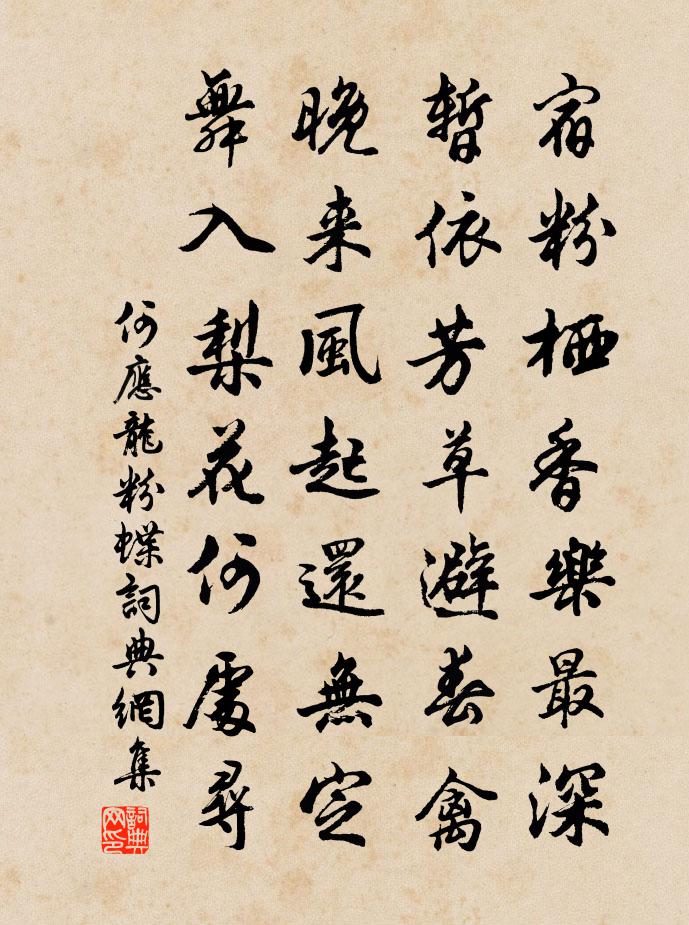 宿粉栖香樂最深
暫依芳草避春禽
晚来風起還無定
舞入梨花何處尋
何應龍粉蝶詞典網集
詞典网印